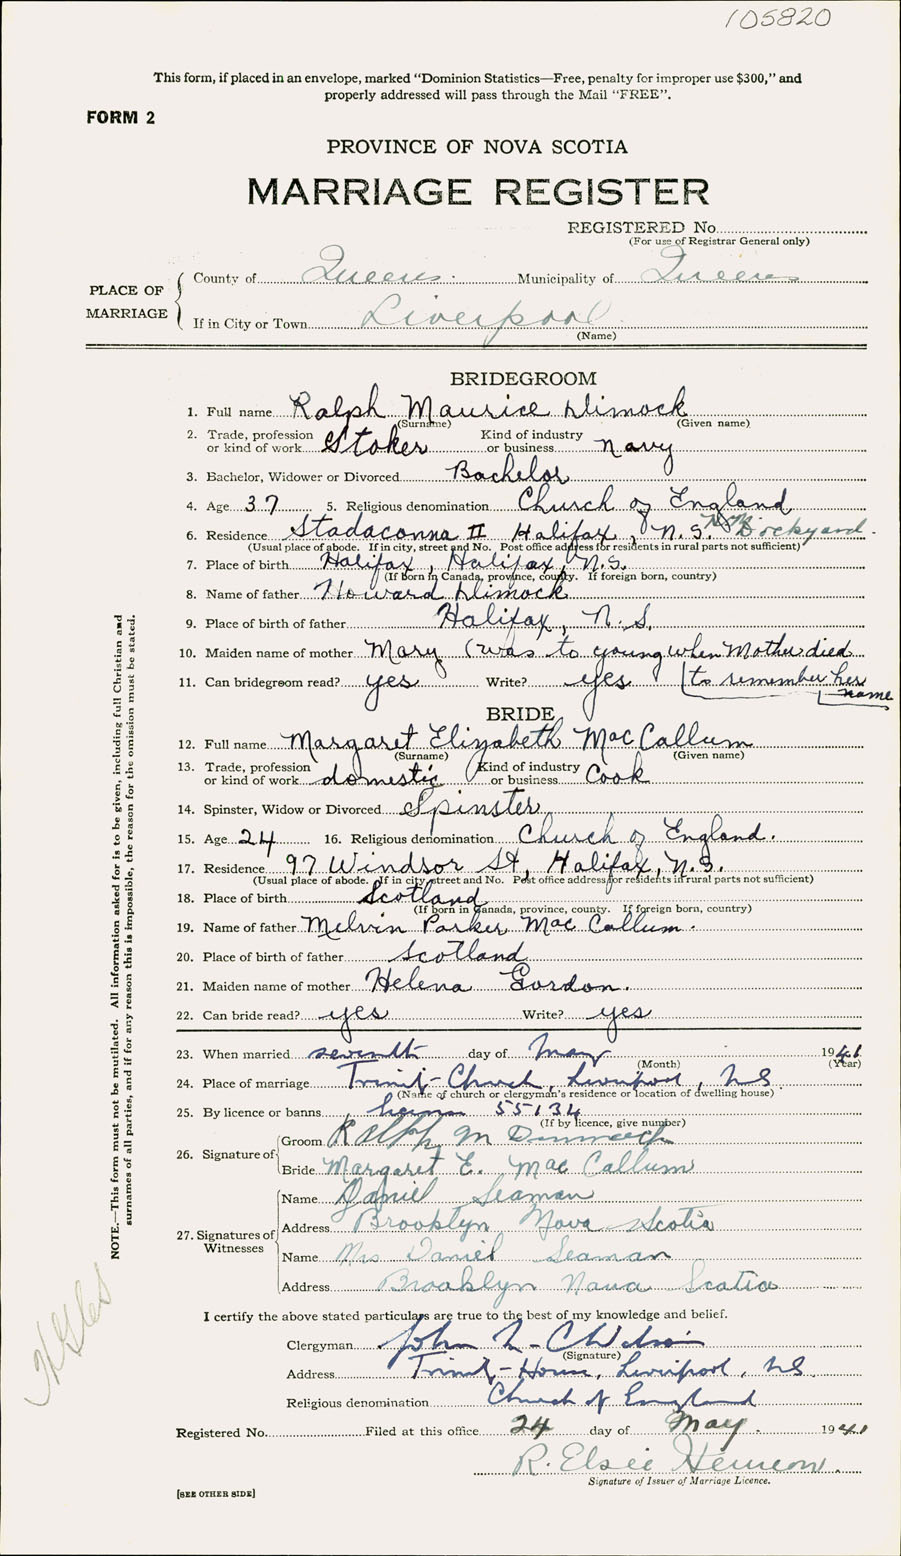 105820
This form, if placed in an envelope, marked "Dominion Statistics—Free, penalty for improper use $300," and
properly addressed will pass through the Mail "FREE".
FORM 2
PROVINCE OF NOVA SCOTIA
MARRIAGE REGISTER
REGISTERED No.
(For use of Registrar General only)
PLACE OF MARRIAGE
County of Queens. Municipality of Queens
If in City or Town Liverpool
(Name)
BRIDEGROOM
1. Full name Ralph Maurice Dimock
(Surname) (Given name)
2. Trade, profession or kind of work Stoker Kind of industry or business navy
3. Bachelor, Widower or Divorced Bachelor
4. Age 37 5. Religious denomination Church of England
6. Residence Stadacona II Halifax, N.S. Dockyard.
(Usual place of abode. If in city, street and No. Post office address for residents in rural parts not sufficient)
7. Place of birth Halifax, Halifax, N.S.
(If born in Canada, province, county. If foreign born, country)
8. Name of father Howard Dimock
9. Place of birth of father Halifax, N.S.
10. Maiden name of mother Mary (was to young when Mother died
11. Can bridegroom read? yes Write? yes to remember her name
BRIDE
12. Full name Margaret Elizabeth MacCallum
(Surname) (Given name)
13. Trade, profession or kind of work domestic Kind of industry or business Cook
14. Spinster, Widow or Divorced Spinster
15. Age 24 16. Religious denomination Church of England.
17. Residence 97 Windsor St, Halifax, N.S.
(Usual place of abode. If in city, street and No. Post office address for residents in rural parts not sufficient)
18. Place of birth Scotland
(If born in Canada, province, county. If foreign born, country)
19. Name of father Melvin Parker MacCallum.
20. Place of birth of father Scotland
21. Maiden name of mother Helena Gordon.
22. Can bride read? yes Write? yes
23. When married seventh day of May 1941
(Month) (Year)
24. Place of marriage Trinity Church, Liverpool, NS
(Name of church or clergyman's residence or location of dwelling house)
25. By licence or banns license 55134
(If by licence, give number)
26. Signature of
Groom Ralph M Dimock
Bride Margaret E. MacCallum
27. Signatures of Witnesses
Name Daniel Seaman
Address Brooklyn Nova Scotia
Name Mrs Daniel Seaman
Address Brooklyn Nova Scotia
I certify the above stated particulars are true to the best of my knowledge and belief.
Clergyman John
(Signature)
Address Trinity House, Liverpool, NS
Religious denomination Church of England
Registered No. Filed at this office 24 day of May. 1941
R. Elsie
Signature of Issuer of Marriage Licence.
[SEE OTHER SIDE]
NOTE.—This form must not be mutilated. All information asked for is to be given, including full Christian and
surnames of all parties, and if for any reason this is impossible, the reason for the omission must be stated.